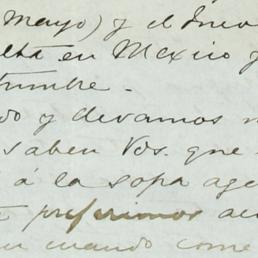 mayo) y el
en Mexico y
y devamos
saben Vds. que
á la sopa
preferimos
cuando come